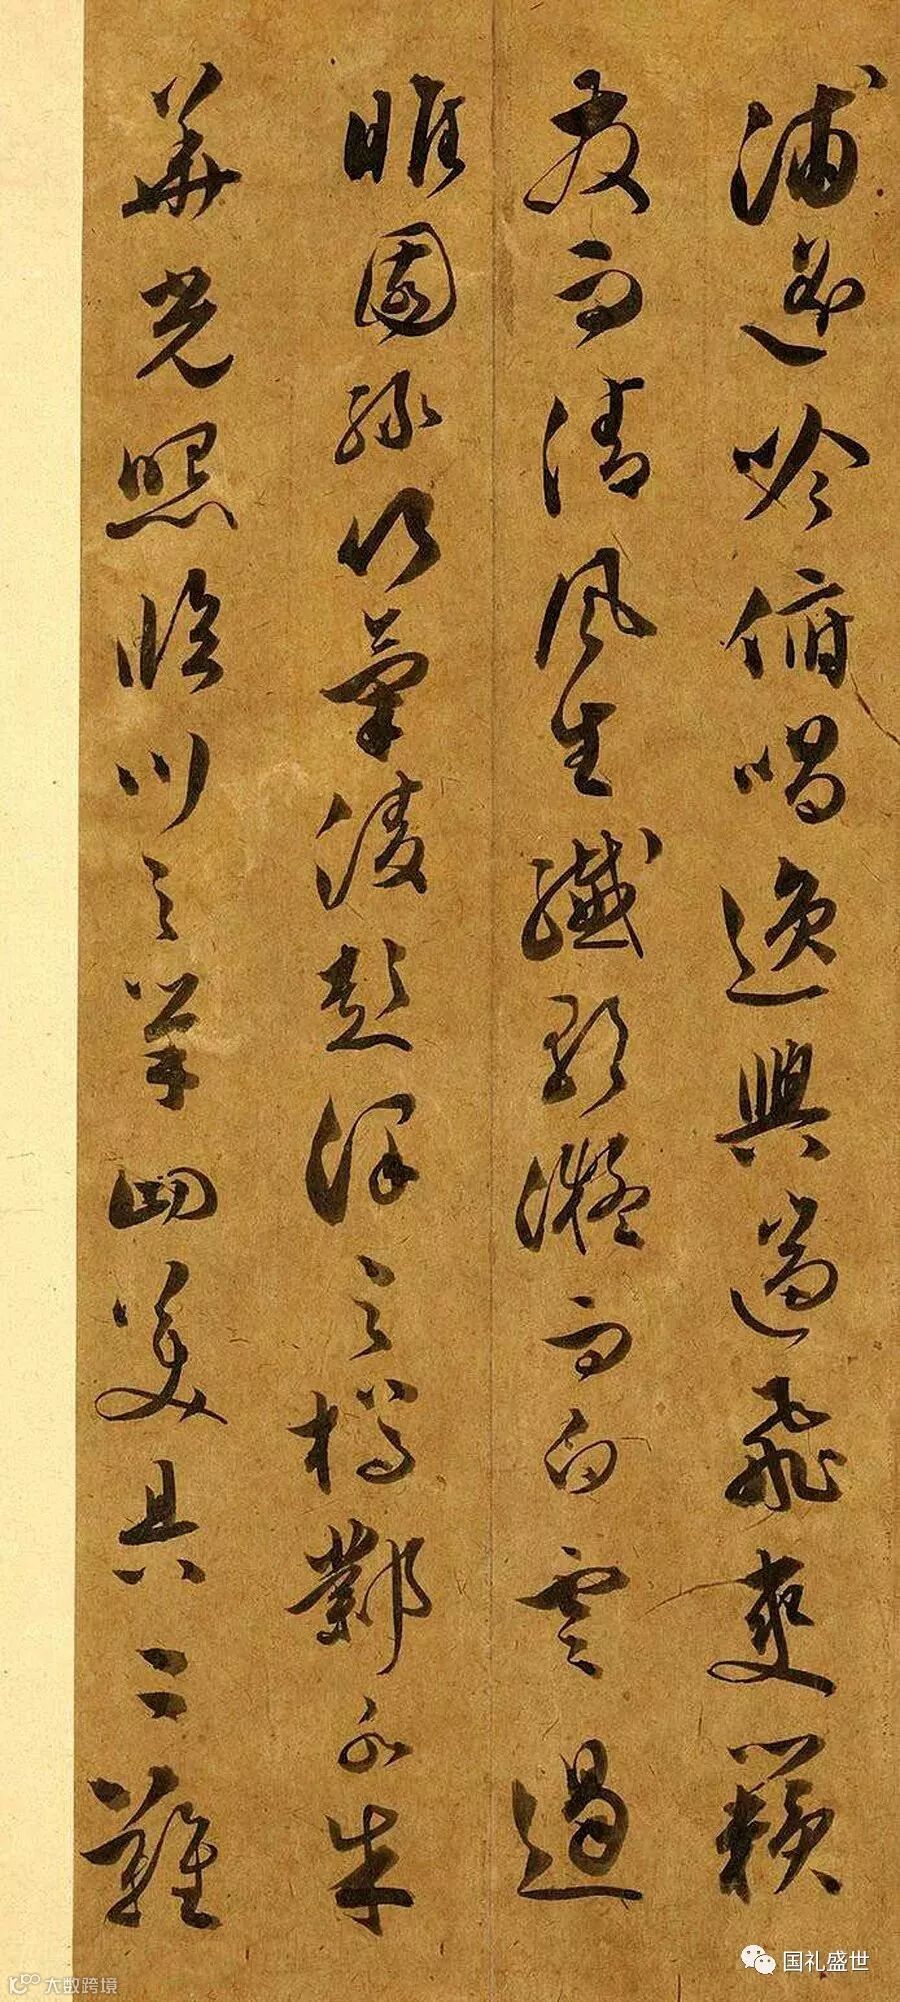 浦遙吟俯唱逸興遄飛爽籟
發而清風生纖歌凝而白雲遏
睢園綠竹氣凌彭澤之樽鄴水朱
華光照臨川之筆四美具二難
国礼盛世
大数跨境